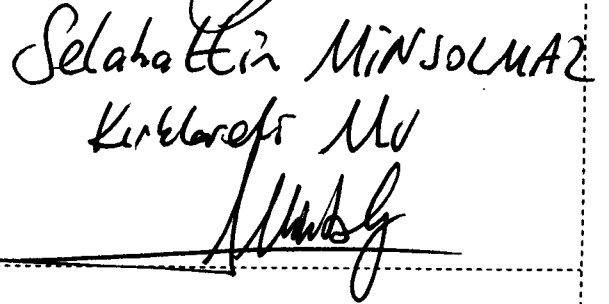 Selahattin MİNSOLMAZ
Kırklareli Mv